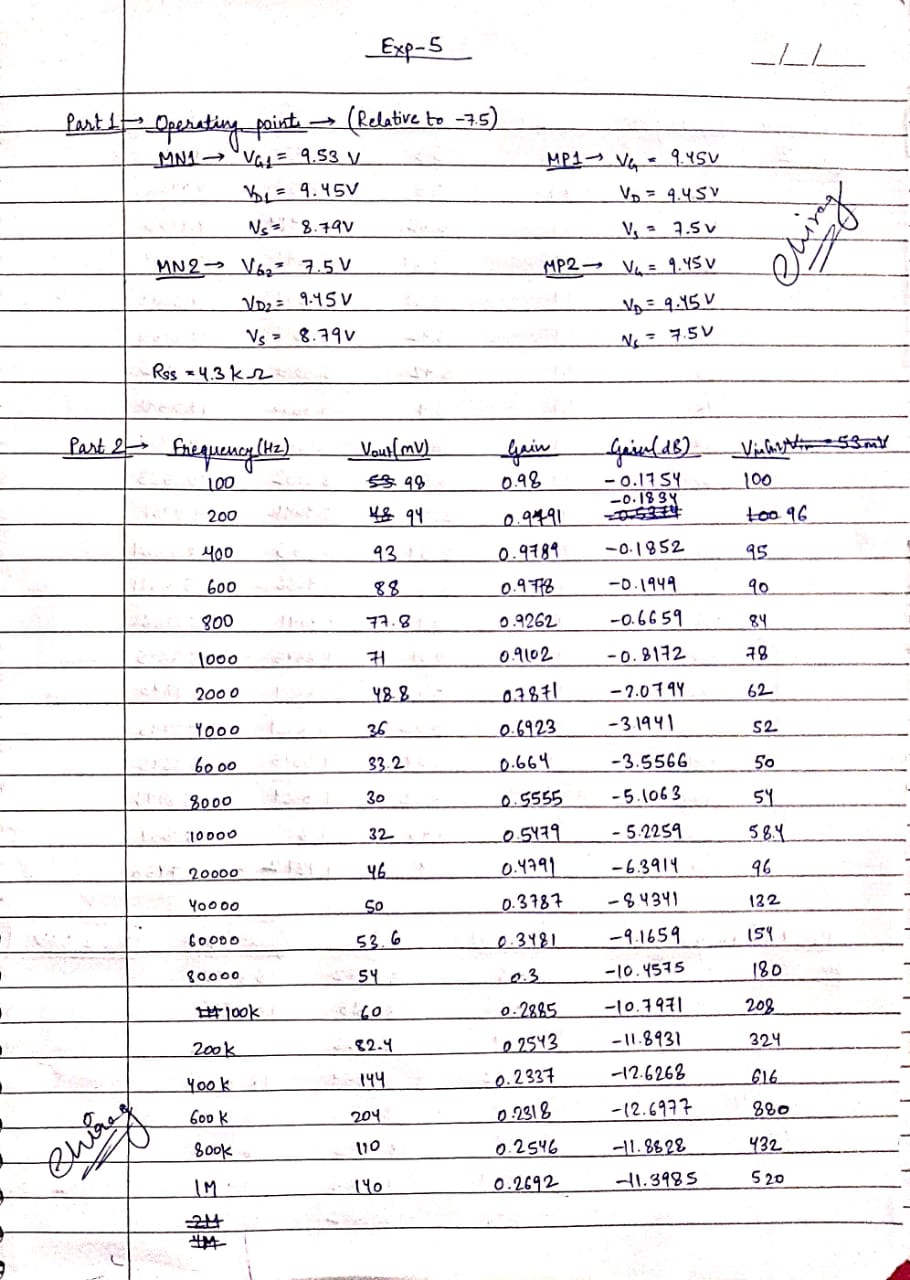 Exp-5
_/_/_
Part 1 → Operating points → (Relative to -7.5)
MN1 → VG1 = 9.53 V MP1 → VG = 9.45V
VD1 = 9.45V VD = 9.45V
VS = 8.79V VS = 7.5V
MN2 → VG2 = 7.5 V MP2 → VG = 9.45V
VD2 = 9.45V VD = 9.45V
VS = 8.79V VS = 7.5V
Chirag
RSS = 4.3 kΩ
Part 2 → Frequency(Hz) Vout(mV) Gain Gain(dB) Vin(mV) Vin = 53mV
100 53 98 0.98 -0.1754 100
200 48 94 0.9791 -0.5374 -0.1834 100 96
400 93 0.9789 -0.1852 95
600 88 0.9778 -0.1949 90
800 77.8 0.9262 -0.6659 84
1000 71 0.9102 -0.8172 78
2000 48.8 0.7871 -2.0794 62
4000 36 0.6923 -3.1941 52
6000 33.2 0.664 -3.5566 50
8000 30 0.5555 -5.1063 54
10000 32 0.5479 -5.2259 58.4
20000 46 0.4791 -6.3914 96
40000 50 0.3787 -8.4341 132
60000 53.6 0.3481 -9.1659 154
80000 54 0.3 -10.4575 180
100k 60 0.2885 -10.7971 208
200k 82.4 0.2543 -11.8931 324
400k 144 0.2337 -12.6268 616
600k 204 0.2318 -12.6977 880
800k 110 0.2546 -11.8828 432
1M 140 0.2692 -11.3985 520
2M
4M
Chirag